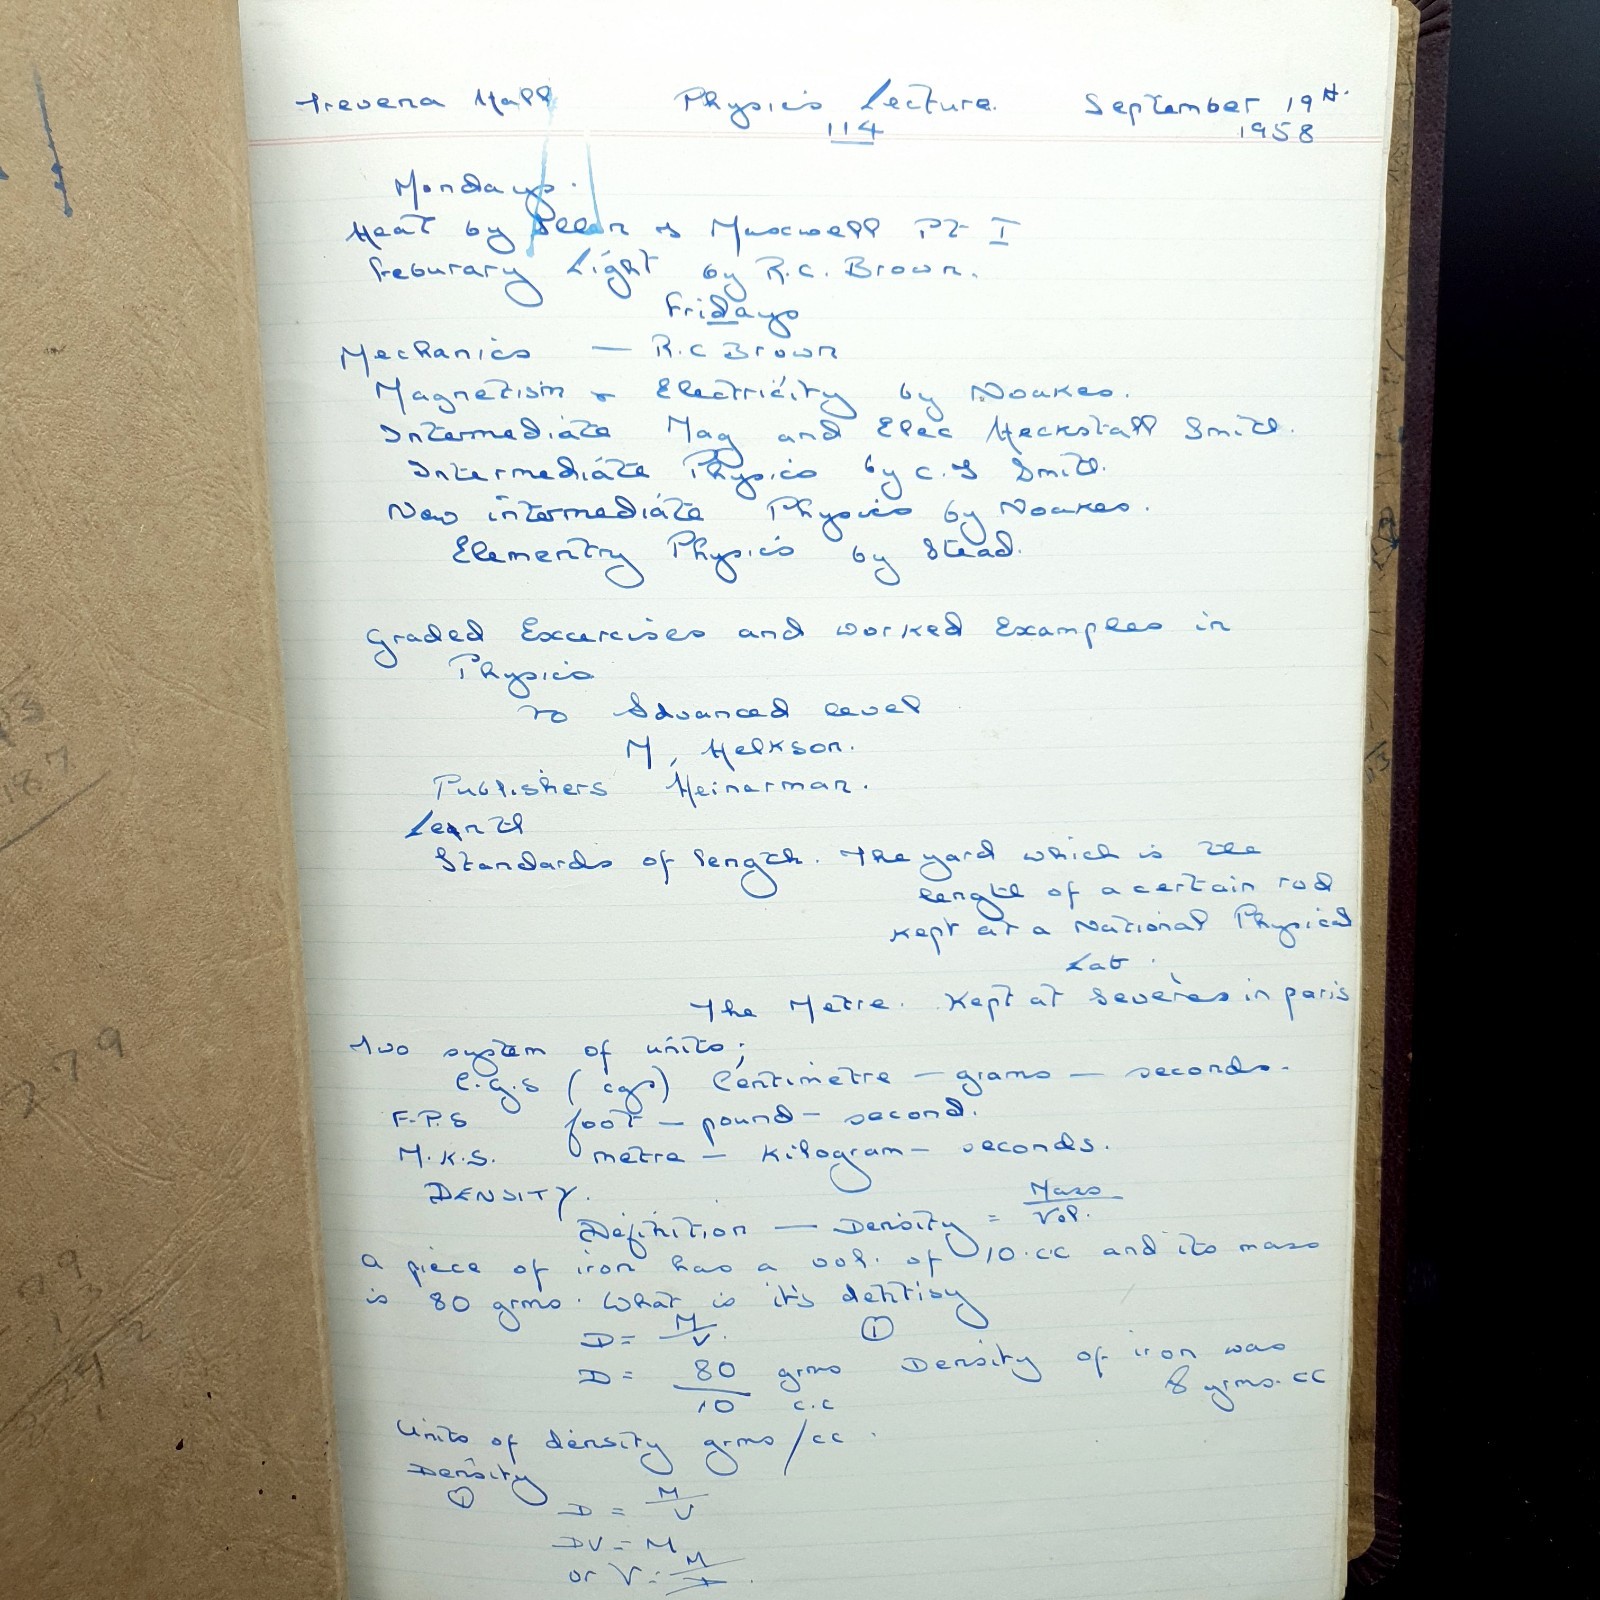 Trevena Hall Physics Lecture. September 19th.
114 1958
Mondays.
Heat by & Maxwell Pt I
Feburary Light by R.C. Brown.
Fridays
Mechanics — R.C Brown
Magnetism & Electricity by Noakes.
Intermediate Mag and Elec Heckstall Smith.
Intermediate Physics by C.J Smith.
New intermediate Physics by Noakes.
Elementry Physics by Stead.
Graded Excercises and worked Examples in
Physics
to Advanced level
M, Nelkson.
Publishers Heinerman.
Standards of length. The yard which is the
length of a certain rod
kept at a National Physical
Lab.
The Metre. Kept at Severes in paris
Two system of units;
C.G.S (cgs) Centimetre – grams – seconds.
F.P.S foot – pound – second.
M.K.S. metre – kilogram – seconds.
DENSITY.
Definition — Density = Mass/Vol.
A piece of iron has a vol. of 10.cc and its mass
is 80 grms. What is it's
D = M/V. ①
D = 80 grms Density of iron was
10 c.c 8 grms.cc
Units of density grms/cc.
Density
① D = M/V
DV = M
or V = M/D.
279
187